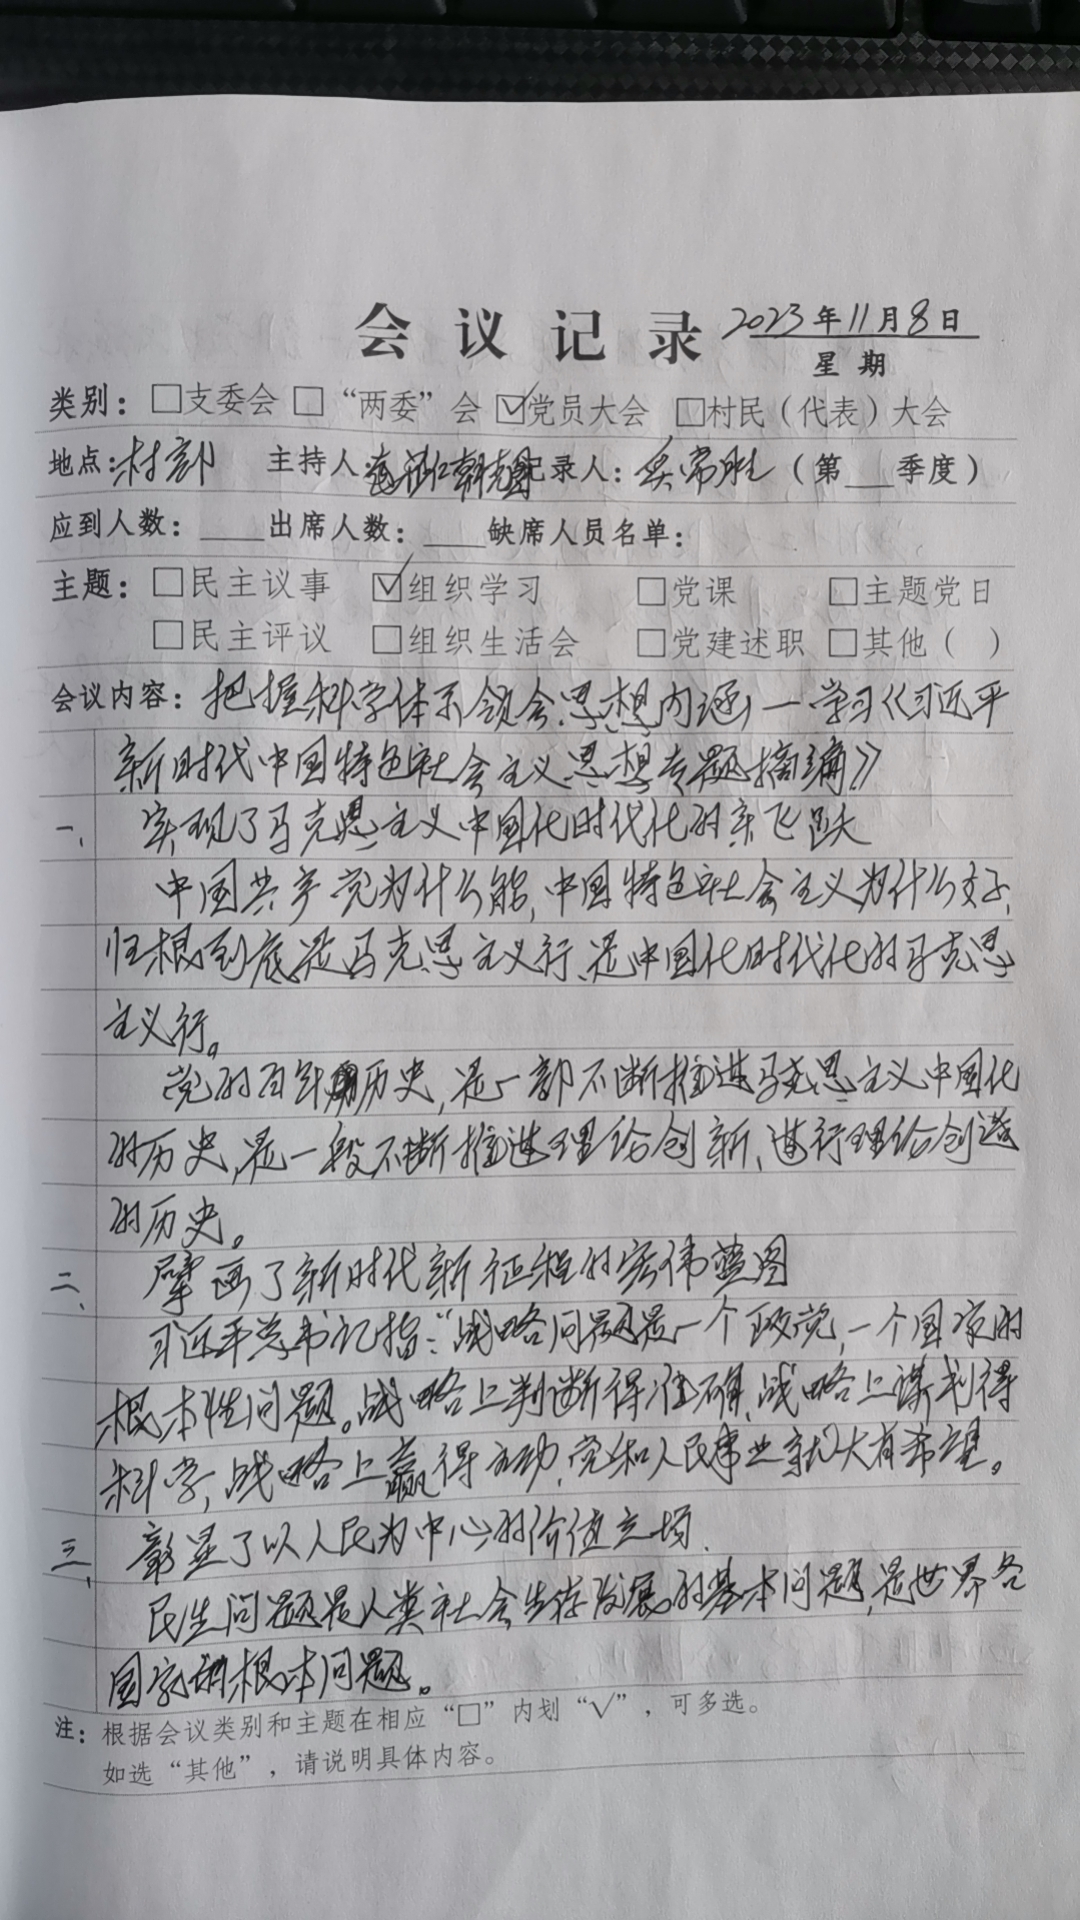 会议记录 2023年11月8日
星期
类别：□支委会 □“两委”会 ☑党员大会 □村民（代表）大会
地点：村部 主持人： 记录人：吴常胜（第___季度）
应到人数：___出席人数：___缺席人员名单：
主题：□民主议事 ☑组织学习 □党课 □主题党日
□民主评议 □组织生活会 □党建述职 □其他（ ）
会议内容：把握科学体系领会思想内涵，一学习《习近平
新时代中国特色社会主义思想专题摘编》
一、 实现了马克思主义中国化时代化的新飞跃
中国共产党为什么能，中国特色社会主义为什么好，
归根到底是马克思主义行、是中国化时代化的马克思
主义行。
党的百年历史，是一部不断推进马克思主义中国化
的历史，是一段不断推进理论创新、进行理论创造
的历史。
二、 擘画了新时代新征程的宏伟蓝图
习近平总书记指：“战略问题是一个政党，一个国家的
根本性问题。战略上判断得准确，战略上谋划得
科学，战略上赢得主动，党和人民事业就大有希望。
三、 彰显了以人民为中心的价值立场.
民生问题是人类社会生存发展的基本问题，是世界各
国家的根本问题。
注：根据会议类别和主题在相应“□”内划“√”，可多选。
如选“其他”，请说明具体内容。